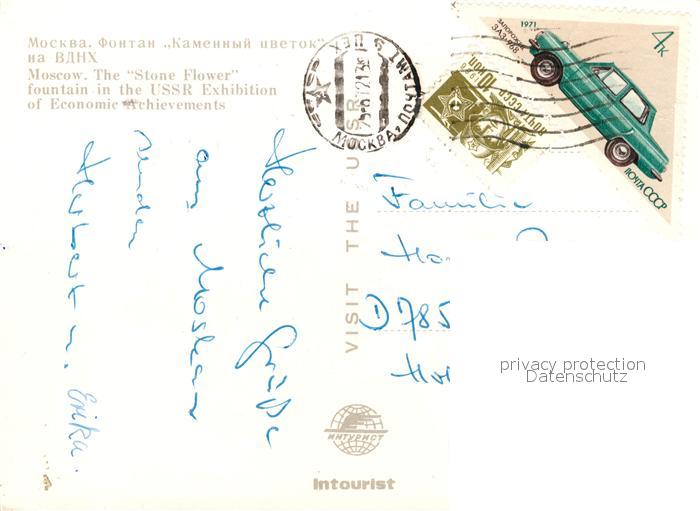 Москва. Фонтан „Каменный цветок“
на ВДНХ
Moscow. The "Stone Flower"
fountain in the USSR Exhibition
of Economic Achievements
Herzliche Grüße
aus Moskau
senden
Herbert u. Erika.
VISIT THE USSR
ИНТУРИСТ
Intourist
МОСКВА, ПОЧТАМТ 9 ЦЕХ
ПОЧТА СССР
10 КОП
1971
ЗАПОРОЖЕЦ
ЗАЗ-968
4к
ПОЧТА СССР
Familie
D 785
privacy protection
Datenschutz